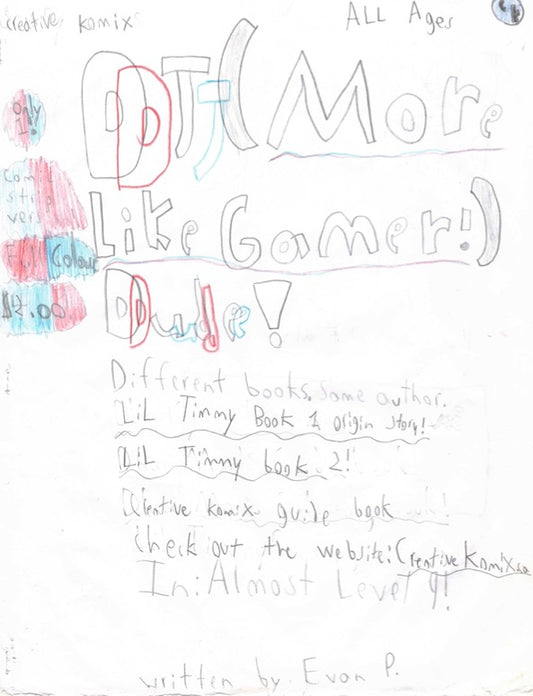 creative komix
ALL Ages
CK
DJ (More
Like Gamer!)
Dude!
only
1!
Comic
strip
vers
Full Colour
$2.00
Different books, same author.
LiL Timmy Book 1 origin story!
LiL Timmy book 2!
Creative komix guide book
Check out the website: CreativeKomix.ca
In: Almost Level 9!
written by Evan P.